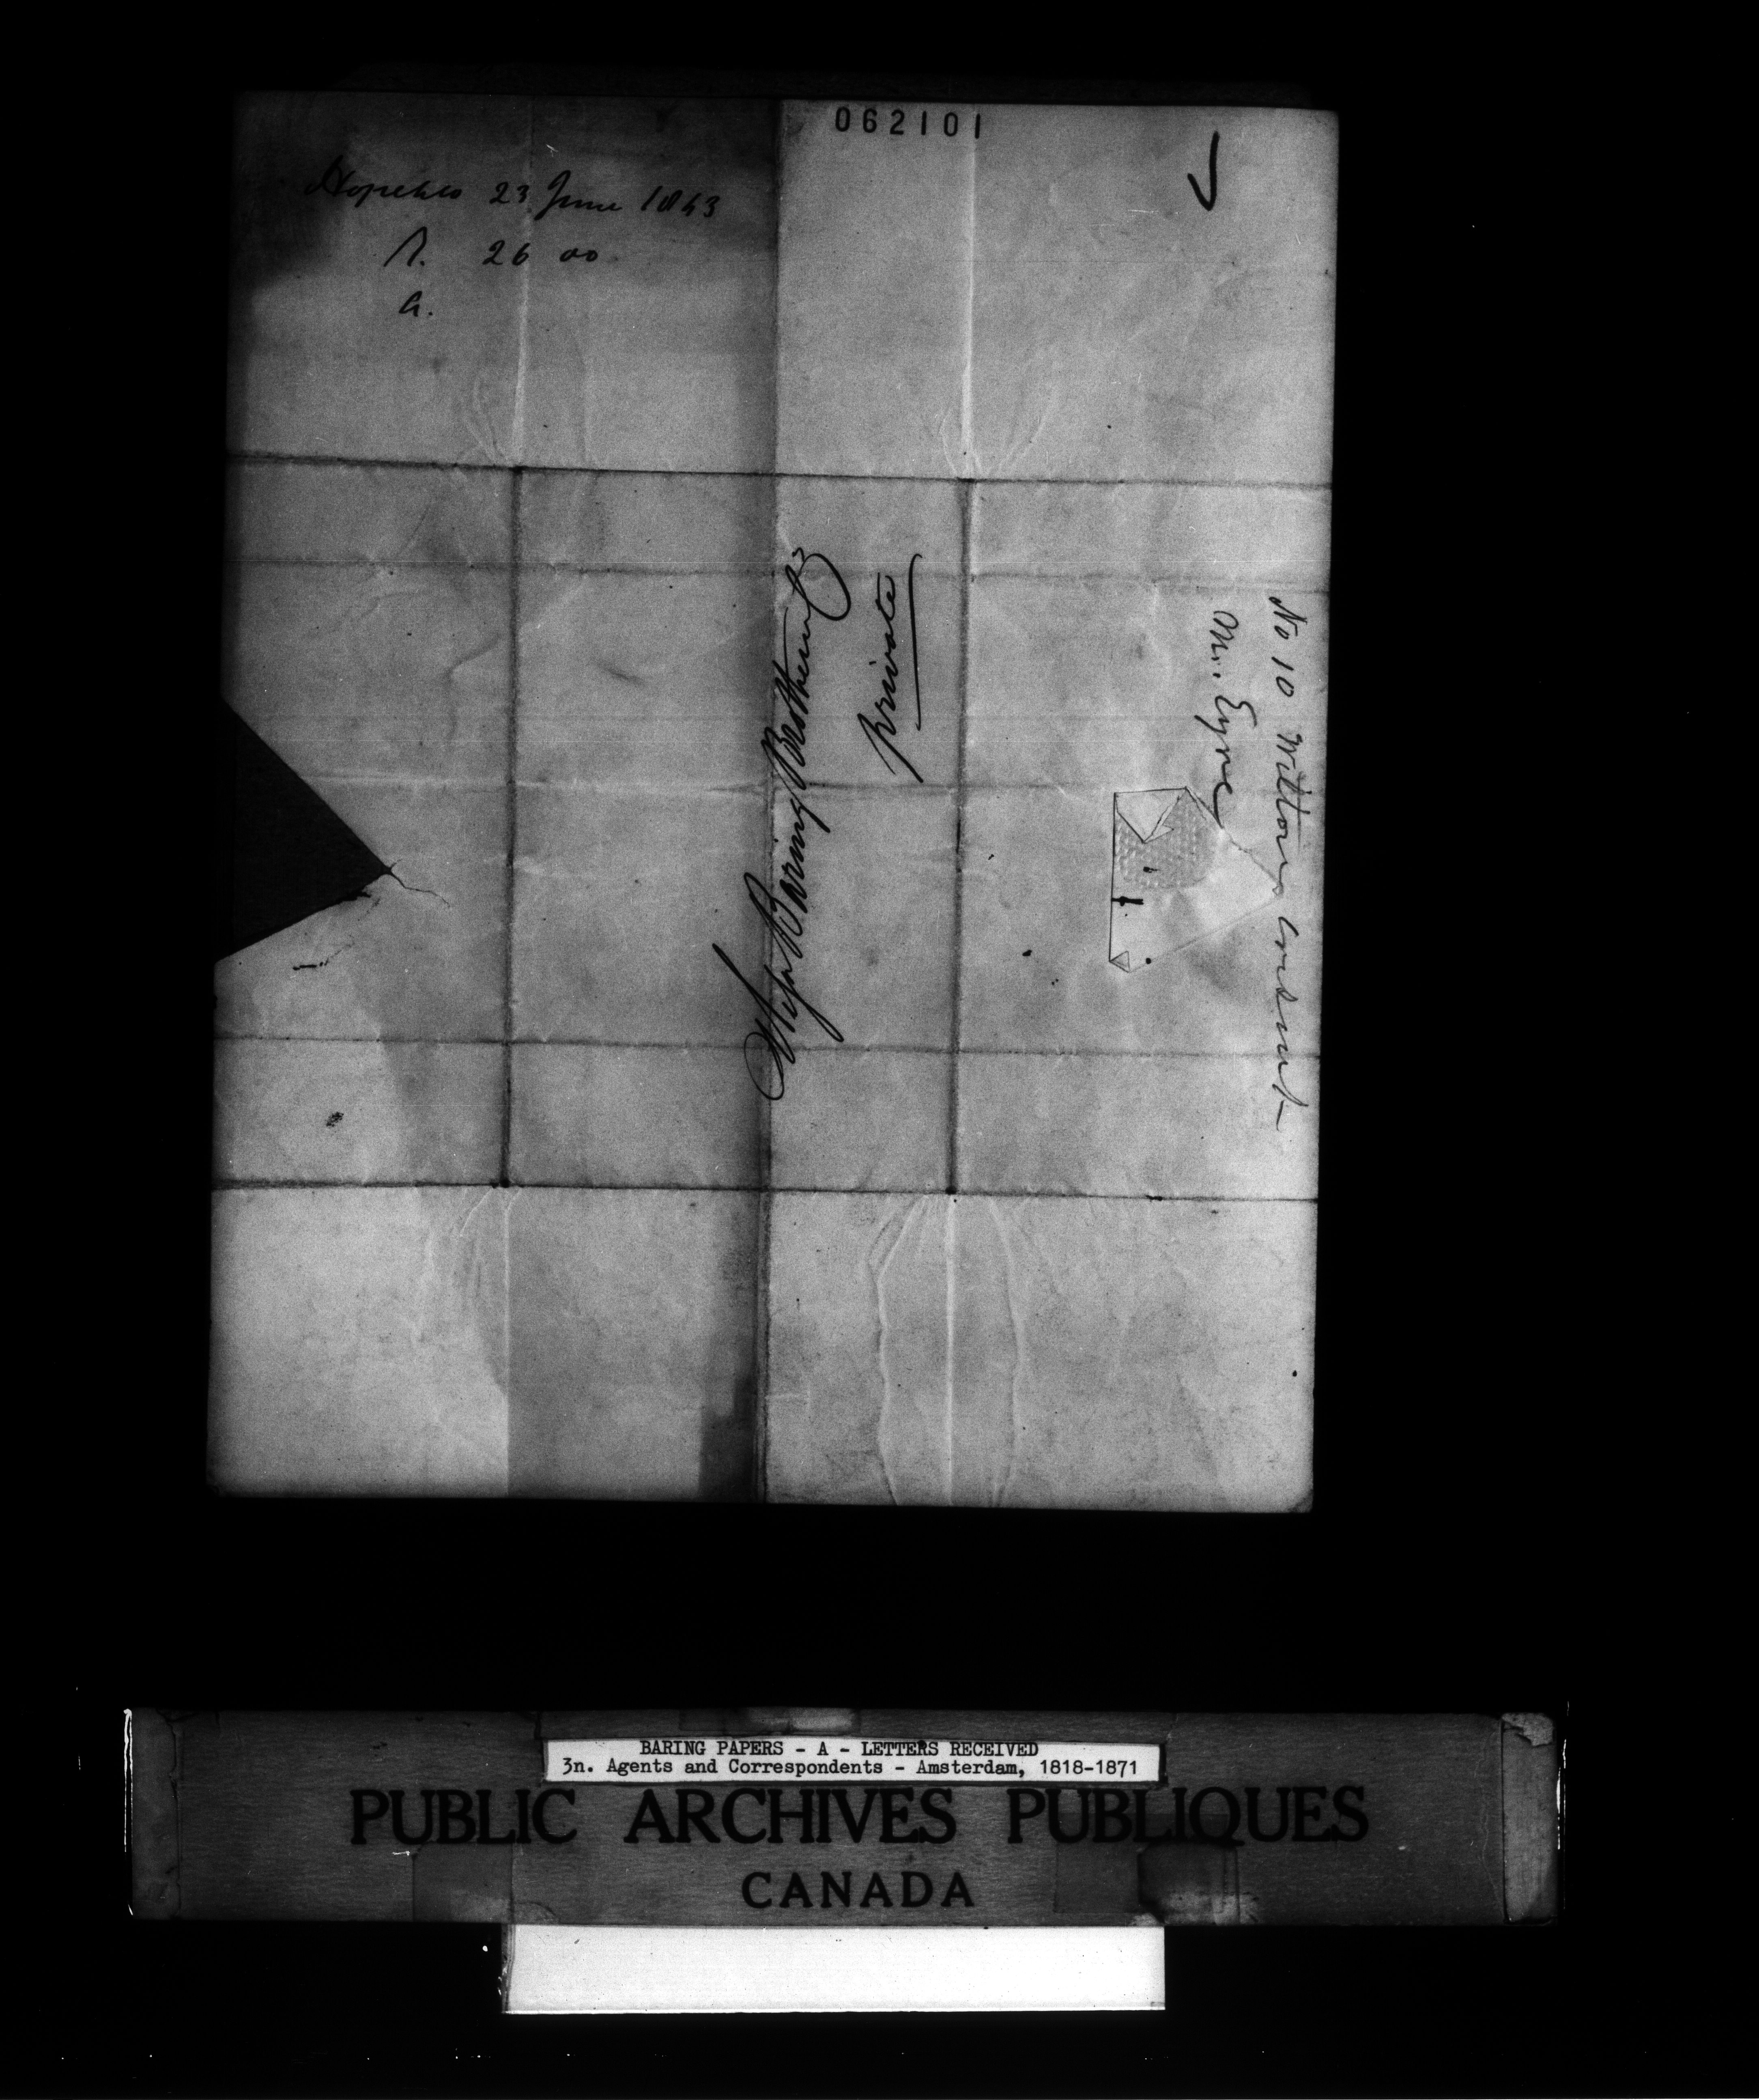 062101
Hope & Co 23 June 1843
R. 26 do
A.
Mess Baring Brothers & Co
private
No 10 Wilton Crescent
Mr. Eyre
BARING PAPERS - A - LETTERS RECEIVED
3n. Agents and Correspondents - Amsterdam, 1818-1871
PUBLIC ARCHIVES PUBLIQUES
CANADA